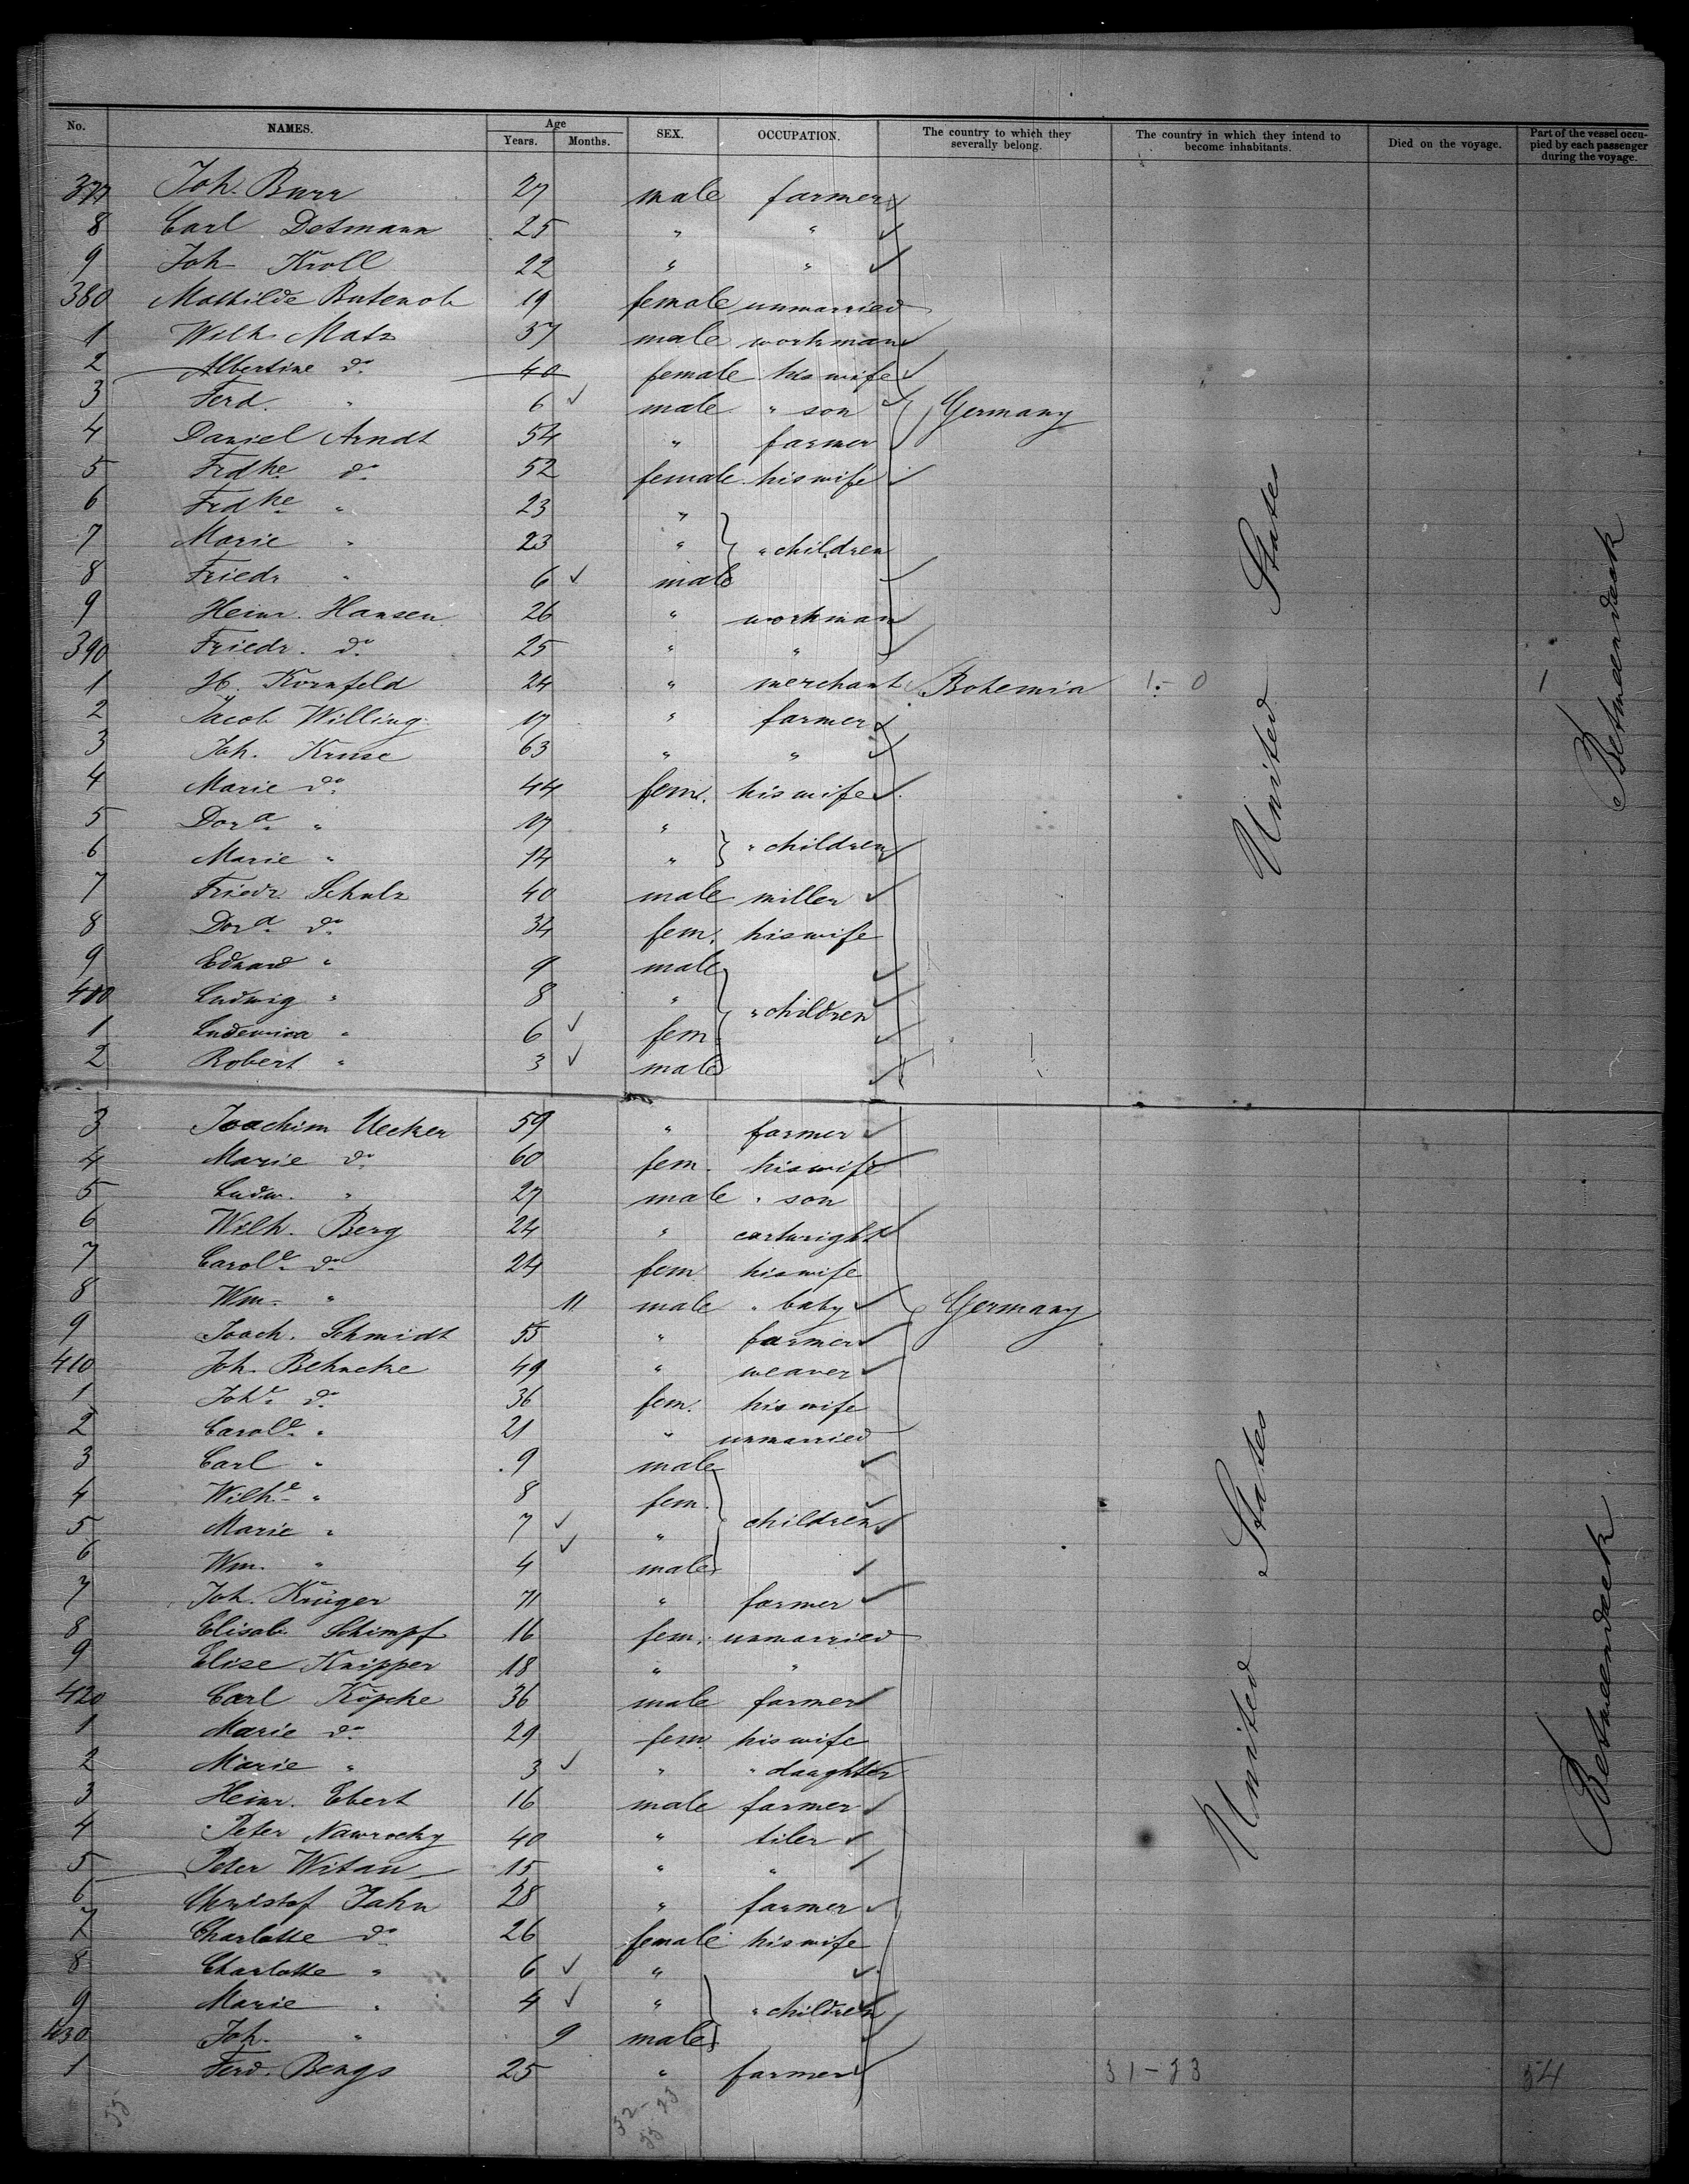 No. NAMES. Age Years. Months. SEX. OCCUPATION. The country to which they severally belong. The country in which they intend to become inhabitants. Died on the voyage. Part of the vessel occupied by each passenger during the voyage.
377 Joh. Burr 27 male farmer
8 Carl Detmann 25 " "
9 Joh Kroll 22 " "
380 Mathilde Butenob 19 female unmarried
1 Wilh. Matz 37 male workman
2 Albertine do 40 female his wife
3 Ferd. " 6 ✓ male " son Germany
4 Daniel Arndt 54 " farmer
5 Frdke do 52 female his wife
6 Frdke " 23 "
7 Marie " 23 " " children
8 Friedr " 6 ✓ male
9 Heinr. Hansen 26 " workman
390 Friedr. do 25 " "
1 H. Kornfeld 24 " merchant Bohemia 1.- 0
2 Jacob Willing 17 " farmer
3 Joh. Kruse 63 " "
4 Marie do 44 fem. his wife
5 Dora " 17 "
6 Marie " 14 " " children
7 Friedr. Schulz 40 male miller
8 Dora do 34 fem. his wife
9 Eduard " 9 male
400 Ludwig " 8 " " children
1 Ludewica " 6 ✓ fem
2 Robert " 3 ✓ male
United States
Betweendeck
3 Joachim Uecker 59 " farmer
4 Marie do 60 fem. his wife
5 Ludw. " 27 male " son
6 Wilh. Berg 24 " cartwright
7 Carole do 24 fem his wife
8 Wm. " 11 male " baby Germany
9 Joach. Schmidt 55 " farmer
410 Joh. Behncke 49 " weaver
1 Johe do 36 fem. his wife
2 Carole " 21 " unmarried
3 Carl " 9 male
4 Wilhe " 8 fem.
5 Marie " 7 ✓ " children
6 Wm. " 4 ✓ male
7 Joh. Krüger 71 " farmer
8 Elisab. Schimpf 16 fem. unmarried
9 Elise Knipper 18 " "
420 Carl Köpcke 36 male farmer
1 Marie do 29 fem. his wife
2 Marie " 3 ✓ " " daughter
3 Heinr. Ebert 16 male farmer
4 Peter Nawrocky 40 " tiler
5 Peter Witau 15 " "
6 Christof Jahn 28 " farmer
7 Charlotte do 26 female his wife
8 Charlotte " 6 ✓ "
9 Marie " 4 ✓ " " children
430 Joh. " 9 male
1 Ferd. Bengs 25 " farmer
United States
Betweendeck
31-23 54